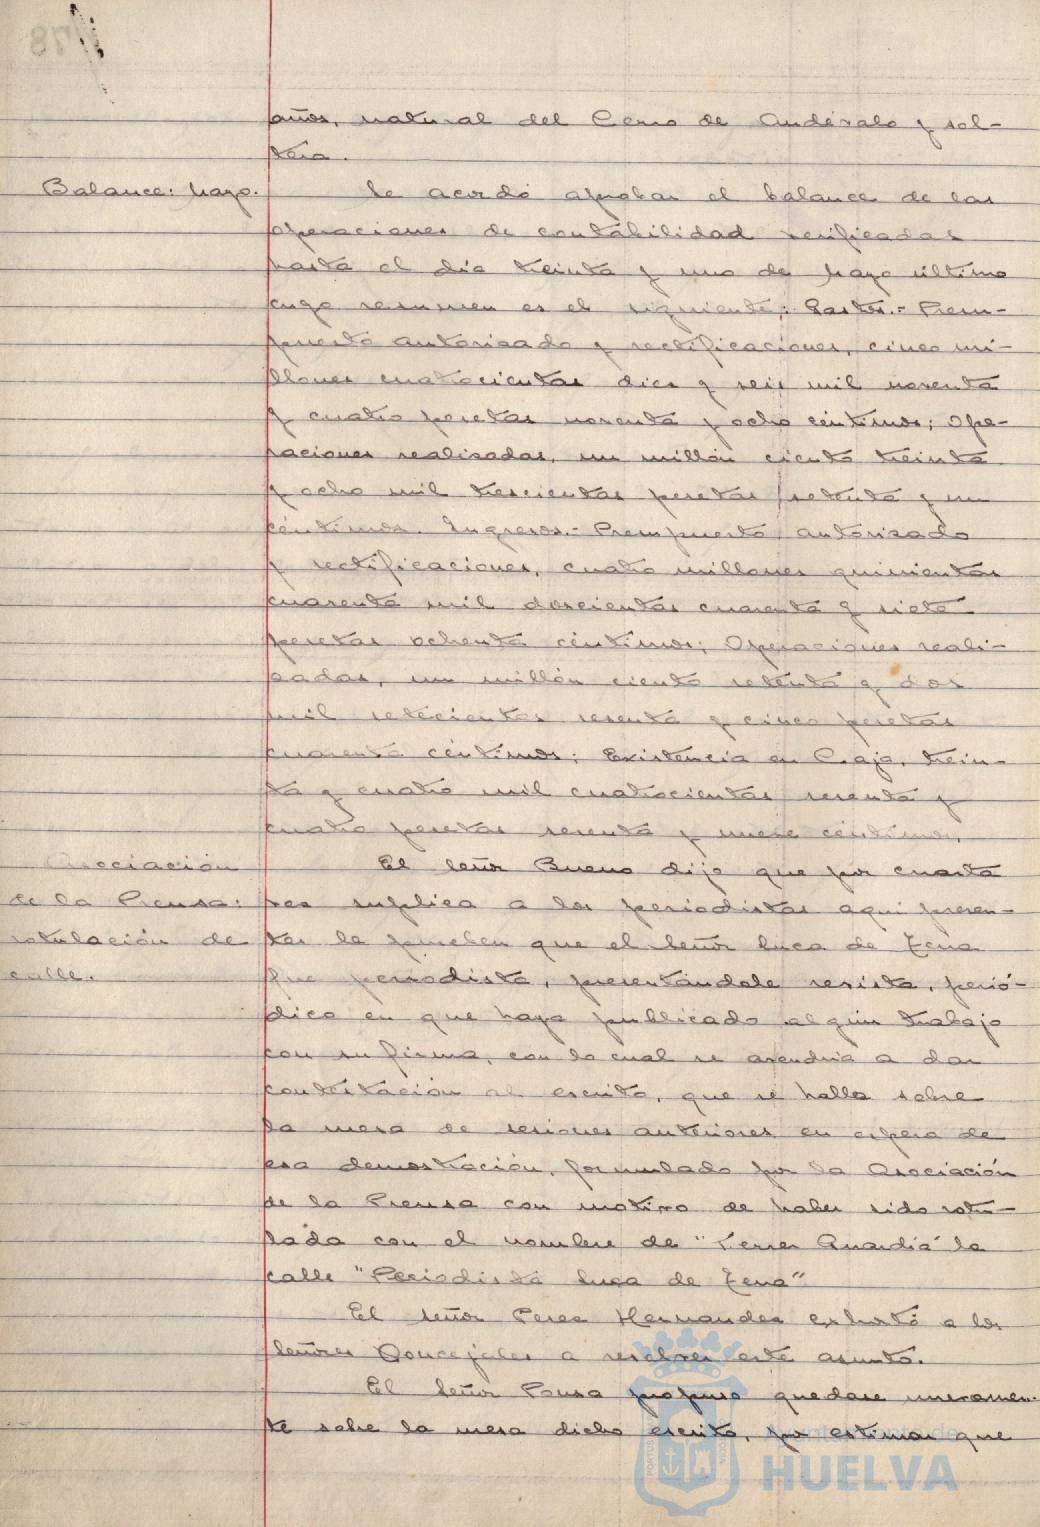 años, natural del Cerro de Andévalo y sol-
tera.
Balance: Mayo.
Se acordó aprobar el balance de las
operaciones de contabilidad verificadas
hasta el dia treinta y uno de Mayo último
cuyo resumen es el siguiente: Gastos.- Presu-
puesto autorizado y rectificaciones, cinco mi-
llones cuatrocientas diez y seis mil noventa
y cuatro pesetas noventa y ocho céntimos; Ope-
raciones realizadas, un millón ciento treinta
y ocho mil trescientas pesetas setenta y un
céntimos. Ingresos.- Presupuesto autorizado
y rectificaciones, cuatro millones quinientas
cuarenta mil doscientas cuarenta y siete
pesetas ochenta céntimos; Operaciones reali-
zadas, un millón ciento setenta y dos
mil setecientas sesenta y cinco pesetas
cuarenta céntimos; Existencia en Caja, trein-
ta y cuatro mil cuatrocientas sesenta y
cuatro pesetas sesenta y nueve céntimos.
Asociación
de la Prensa:
rotulación de
calle.
El señor Bueno dijo que por cuarta
vez suplica a los periodistas aqui presen-
tes le prueben que el señor Luca de Tena
fue periodista, presentándole revista, perió-
dico en que haya publicado algún trabajo
con su firma, con lo cual se avendria a dar
contestación al escrito, que se halla sobre
la mesa de sesiones anteriores en espera de
esa demostración, formulado por la Asociación
de la Prensa con motivo de haber sido rotu-
lada con el nombre de "Ferrer Guardia" la
calle "Periodista Luca de Tena"
El señor Perez Hernandez exhortó a los
señores Concejales a resolver este asunto.
El señor Ponsa propuso quedase nuevamen-
te sobre la mesa dicho escrito, por estimar que
HUELVA